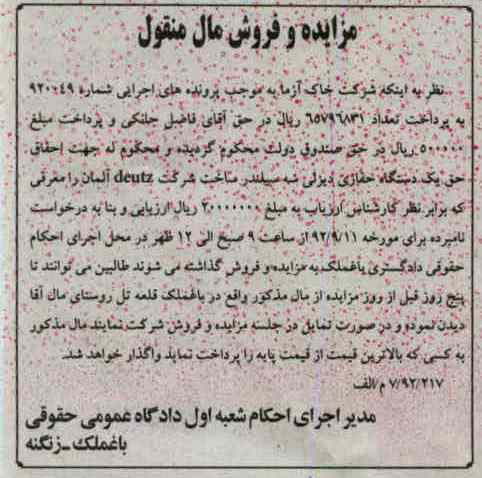 مزایده و فروش مال منقول
نظر به اینکه شرکت خاک آزما به موجب پرونده های اجرایی شماره ۹۲۰۰۴۹
به پرداخت تعداد ۶۵۷۹۶۸۳۱ ریال در حق آقای فاضل جلنکی و پرداخت مبلغ
۵۰۰۰۰۰ ریال در حق صندوق دولت محکوم گردیده و محکوم له جهت احقاق
حق یک دستگاه حفاری دیزلی سه سیلندر ساخت شرکت deutz آلمان را معرفی
که برابر نظر کارشناس ارزیاب به مبلغ ۲۰۰۰۰۰۰۰۰ ریال ارزیابی و بنا به درخواست
نامبرده برای مورخه ۹۲/۹/۱۱ از ساعت ۹ صبح الی ۱۲ ظهر در محل اجرای احکام
حقوقی دادگستری باغملک به مزایده و فروش گذاشته می شوند طالبین می توانند تا
پنج روز قبل از روز مزایده از مال مذکور واقع در باغملک قلعه تل روستای مال آقا
دیدن نموده و در صورت تمایل در جلسه مزایده و فروش شرکت نمایند مال مذکور
به کسی که بالاترین قیمت از قیمت پایه را پرداخت نماید واگذار خواهد شد.
۷/۹۲/۲۱۷ م/الف
مدیر اجرای احکام شعبه اول دادگاه عمومی حقوقی
باغملک - زنگنه